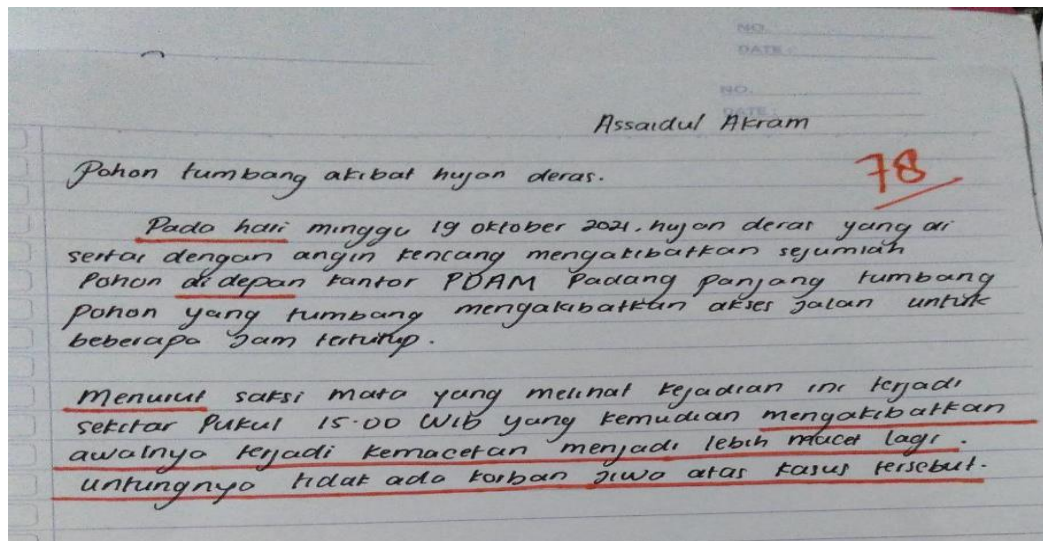 NO.
DATE :
NO.
DATE :
Assaidul Akram
78
Pohon tumbang akibat hujan deras.
Pada hari minggu 19 oktober 2021. hujan deras yang di
sertai dengan angin kencang mengakibatkan sejumlah
Pohon di depan kantor PDAM Padang Panjang tumbang
Pohon yang tumbang mengakibatkan akses jalan untuk
beberapa Jam tertutup.
Menurut saksi mata yang melihat kejadian ini terjadi
sekitar Pukul 15.00 Wib yang kemudian mengakibatkan
awalnya terjadi kemacetan menjadi lebih macet lagi.
untungnya tidak ada korban Jiwa atas kasus tersebut.